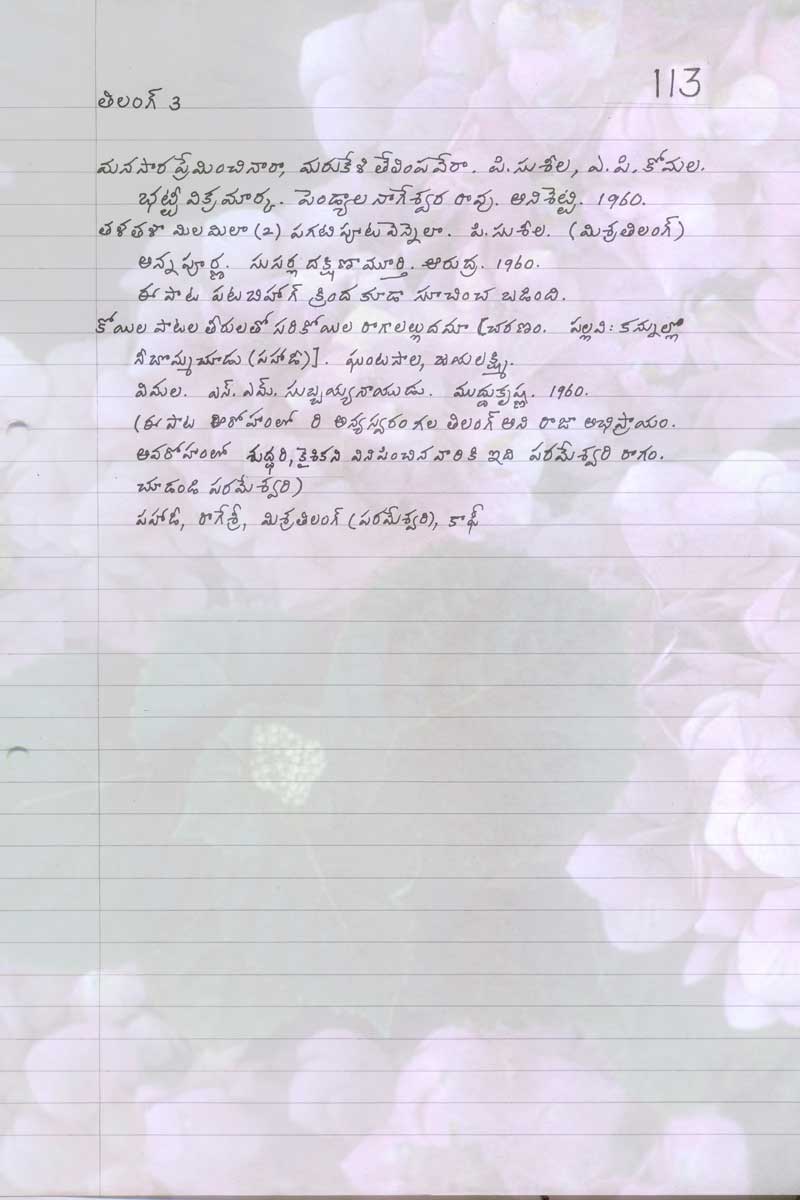 113
తిలంగ్ 3
మనసార ప్రేమించినారా, మరుకేళి తేలింపవేరా. పి. సుశీల, ఎ. పి. కోమల.
భట్టీ విక్రమార్క. పెండ్యాల నాగేశ్వర రావు. అనిశెట్టి. 1960.
తళతళా మిలమిలా (2) పగటిపూట వెన్నెలా. పి. సుశీల. (మిశ్రతిలంగ్)
అన్నపూర్ణ. సుసర్ల దక్షిణామూర్తి. ఆరుద్ర. 1960.
ఈ పాట పటబిహాగ్ క్రింద కూడా సూచించ బడింది.
కోయిల పాటల తీరులతో సరికోయిల రాగాలల్లుదమా [చరణం. పల్లవి: కన్నుల్లో
నీబొమ్మ చూడు (పహాడీ)]. ఘంటసాల, జయలక్ష్మి.
విమల. ఎస్. ఎమ్. సుబ్బయ్యనాయుడు. ముద్దుకృష్ణ. 1960.
(ఈ పాట ఆరోహంలో రి అన్యస్వరంగల తిలంగ్ అని రాజా అభిప్రాయం.
అవరోహంలో శుద్ధరి, కైశికిని వినిపించినవారికి ఇది పరమేశ్వరి రాగం.
చూడండి పరమేశ్వరి)
పహాడీ, రాగేశ్రీ, మిశ్రతిలంగ్ (పరమేశ్వరి), కాఫీ